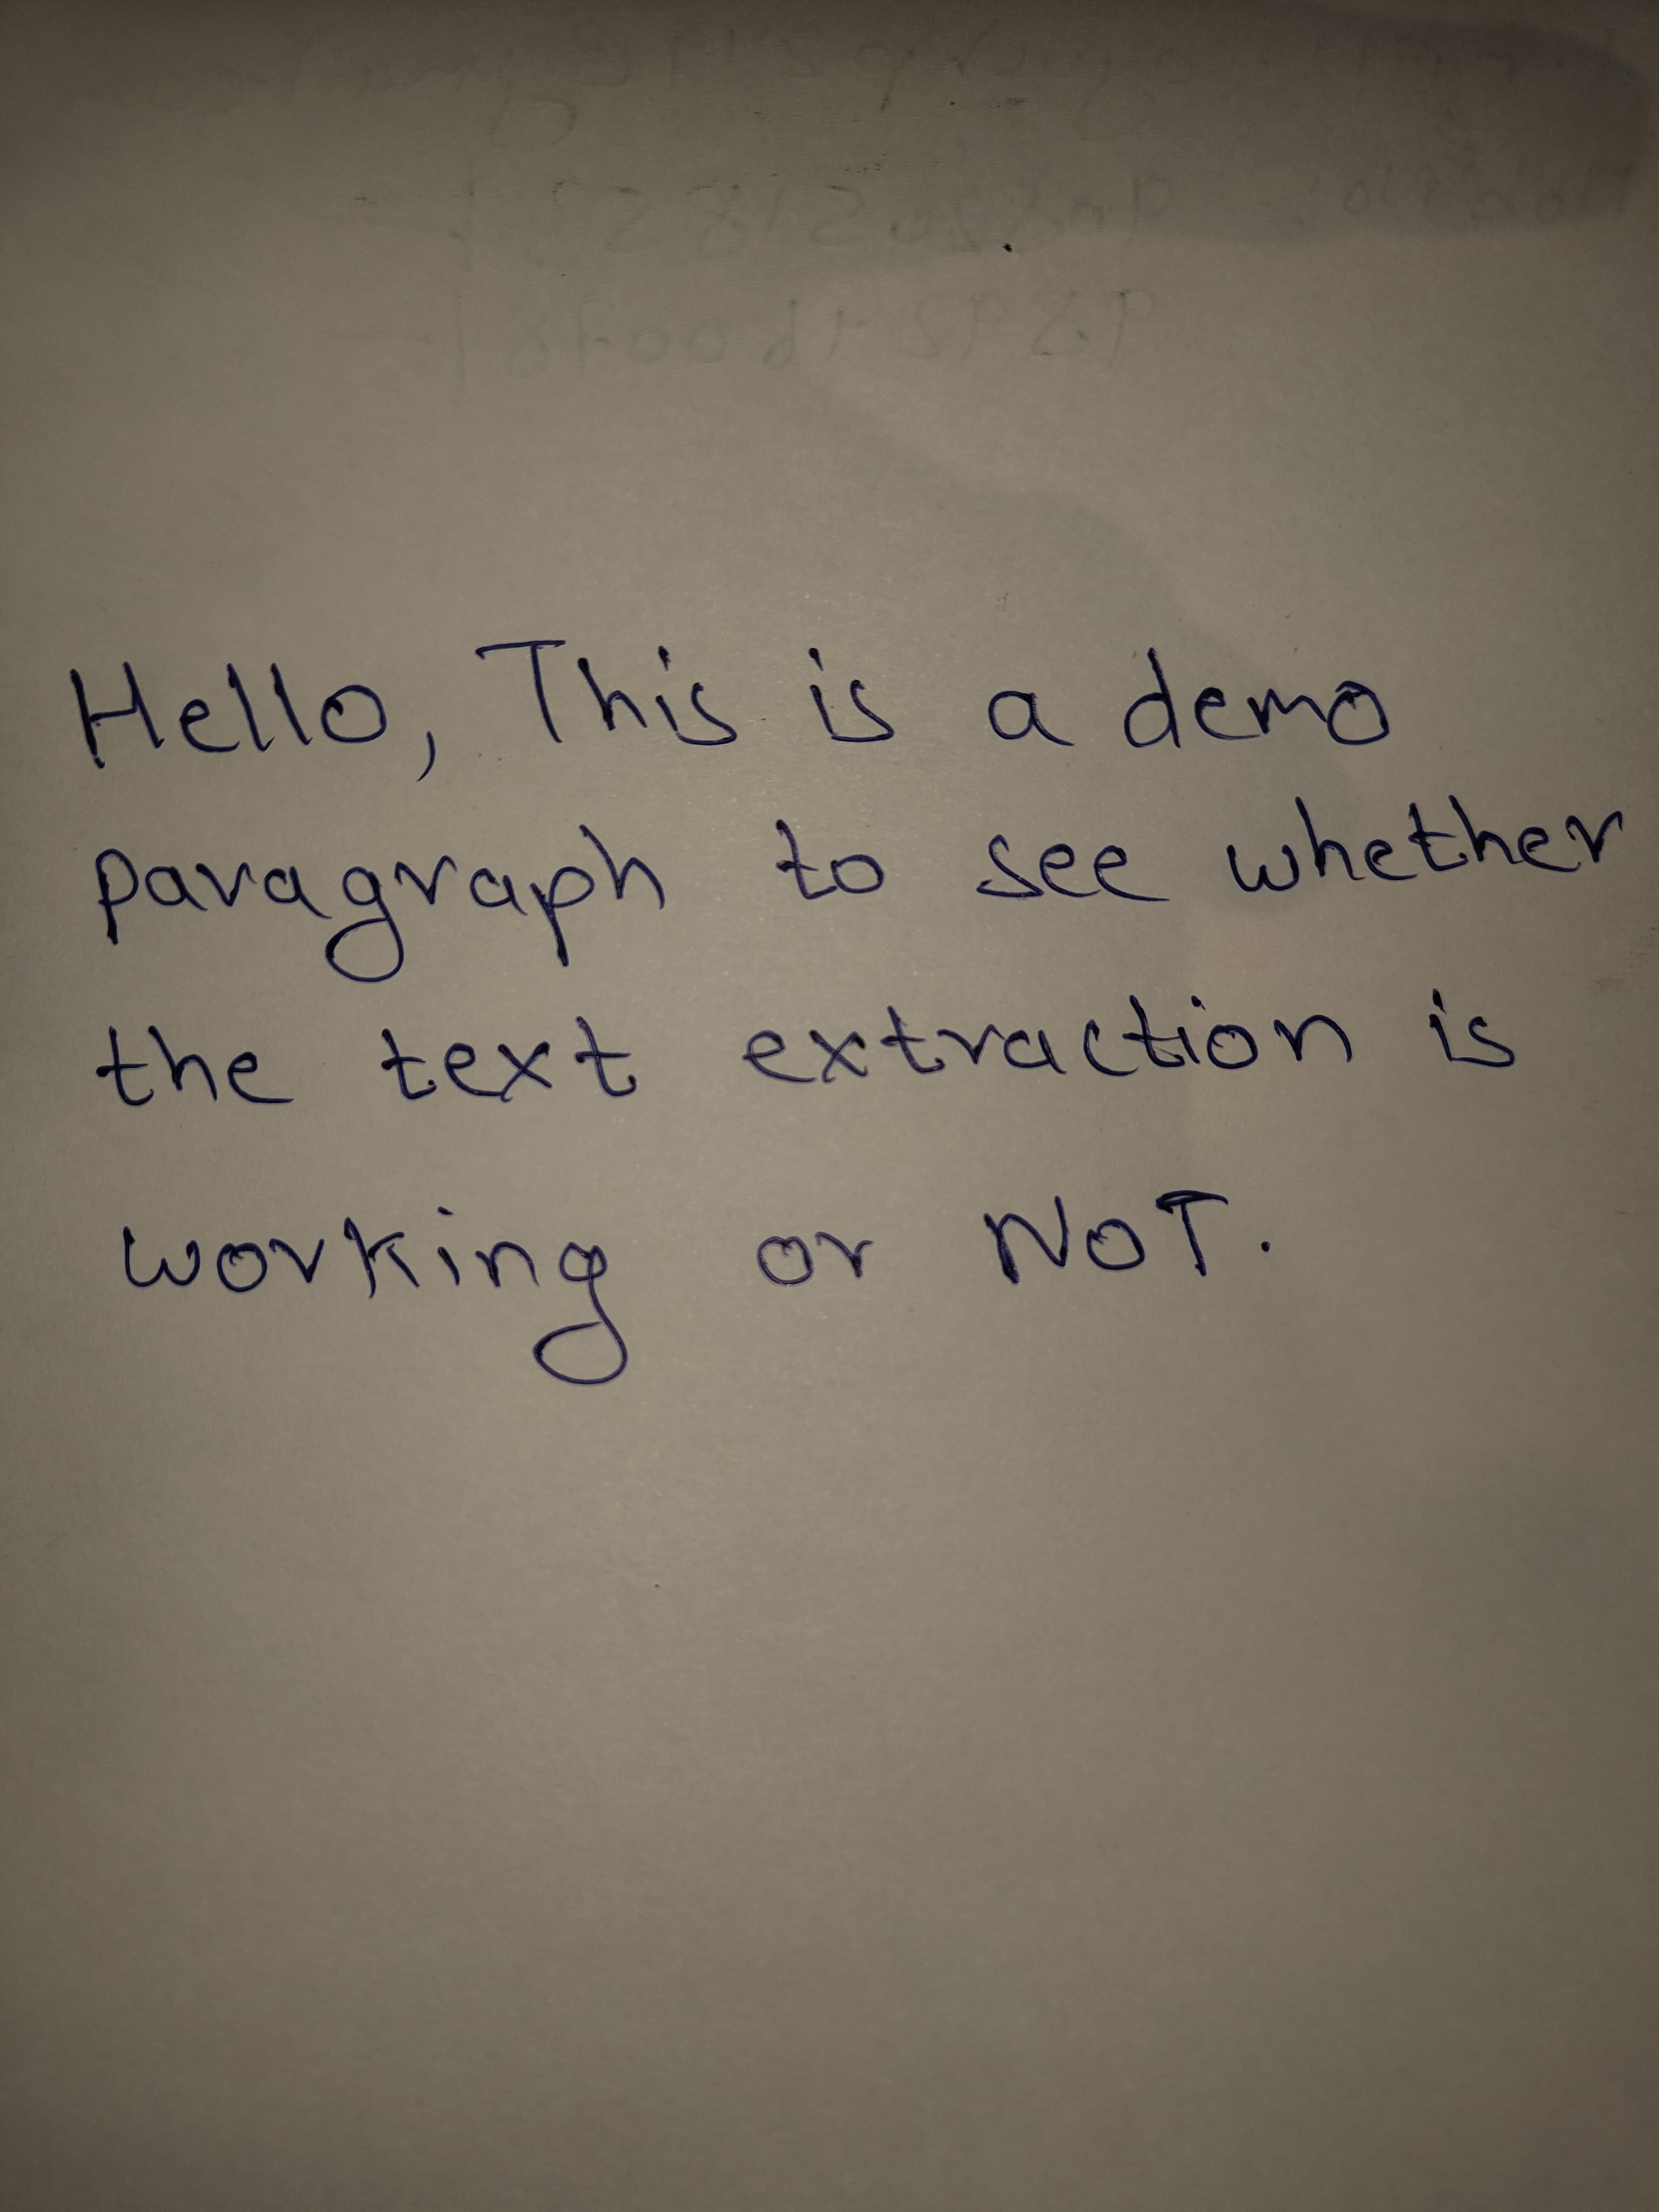 Hello, This is a demo
paragraph to see whether
the text extraction is
working or NOT.